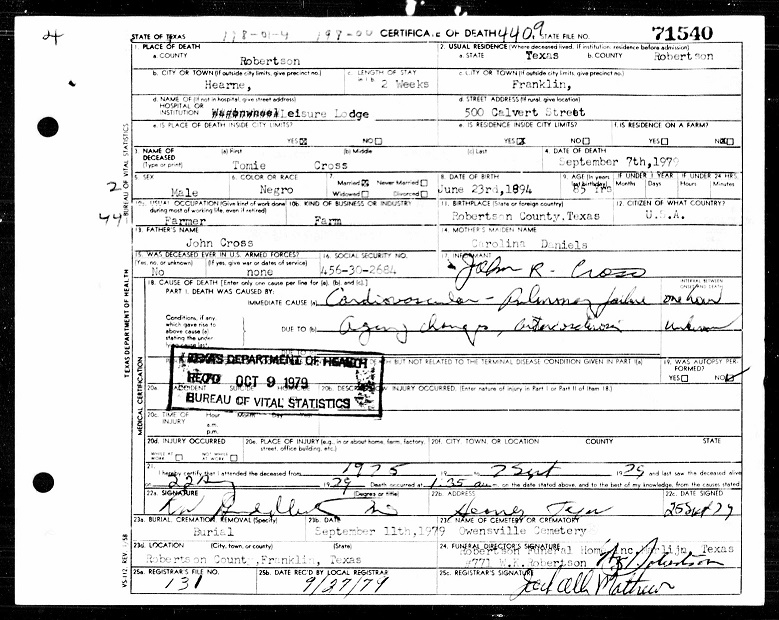 4
STATE OF TEXAS CERTIFICATE OF DEATH 4409 STATE FILE NO. 71540
1. PLACE OF DEATH 2. USUAL RESIDENCE (Where deceased lived. If institution, residence before admission)
a. COUNTY Robertson a. STATE Texas b. COUNTY Robertson
b. CITY OR TOWN (If outside city limits, give precinct no.) c. LENGTH OF STAY c. CITY OR TOWN (If outside city limits, give precinct no.)
Hearne, 2 Weeks Franklin,
d. NAME OF (If not in hospital, give street address) d. STREET ADDRESS (If rural, give location)
HOSPITAL OR
INSTITUTION Leisure Lodge 500 Calvert Street
e. IS PLACE OF DEATH INSIDE CITY LIMITS? e. IS RESIDENCE INSIDE CITY LIMITS? f. IS RESIDENCE ON A FARM?
YES NO YES NO YES NO
3. NAME OF DECEASED (Type or print) (a) First (b) Middle (c) Last 4. DATE OF DEATH
Tomie Cross September 7th,1979
5. SEX 6. COLOR OR RACE 7. Married Never Married 8. DATE OF BIRTH 9. AGE (In years IF UNDER 1 YEAR IF UNDER 24 HRS.
Widowed Divorced Months Days Hours Minutes
Male Negro June 23rd,1894 85 Yrs
10a. USUAL OCCUPATION (Give kind of work done 10b. KIND OF BUSINESS OR INDUSTRY 11. BIRTHPLACE (State or foreign country) 12. CITIZEN OF WHAT COUNTRY?
during most of working life, even if retired)
Farmer Farm Robertson County,Texas U.S.A.
13. FATHER'S NAME 14. MOTHER'S MAIDEN NAME
John Cross Carolina Daniels
15. WAS DECEASED EVER IN U.S. ARMED FORCES? 16. SOCIAL SECURITY NO. 17. INFORMANT
(Yes, no, or unknown) (If yes, give war or dates of service)
No none 456-30-2684 John R. Cross
18. CAUSE OF DEATH [Enter only one cause per line for (a), (b), and (c).] INTERVAL BETWEEN
PART I. DEATH WAS CAUSED BY:
IMMEDIATE CAUSE (a) Cardiovascular - Pulmonary failure one hour
Conditions, if any
which gave rise to
above cause (a)
stating the under-
DUE TO (b) Ageing changes, arteriosclerosis unknown
BUT NOT RELATED TO THE TERMINAL DISEASE CONDITION GIVEN IN PART I(a) 19. WAS AUTOPSY PERFORMED?
YES NO
TEXAS DEPARTMENT OF HEALTH
REC'D OCT 9 1979
BUREAU OF VITAL STATISTICS
20a. ACCIDENT SUICIDE 20b. INJURY OCCURRED. (Enter nature of injury in Part I or Part II of item 18.)
20c. TIME OF INJURY Hour Month Day Year
a.m.
p.m.
20d. INJURY OCCURRED 20e. PLACE OF INJURY (e.g., in or about home, farm, factory, street, office building, etc.) 20f. CITY, TOWN, OR LOCATION COUNTY STATE
WHILE AT WORK NOT WHILE AT WORK
21. I hereby certify that I attended the deceased from 1975 19 7 Sept 1979 and last saw the deceased alive
on 1979 Death occurred at 1:35 am on the date stated above, and to the best of my knowledge, from the causes stated
22a. SIGNATURE (Degree or title) 22b. ADDRESS 22c. DATE SIGNED
Hearne, Texas 25 Sept 79
23a. BURIAL, CREMATION, REMOVAL (Specify) 23b. DATE 23c. NAME OF CEMETERY OR CREMATORY
Burial September 11th,1979 Owensville Cemetery
23d. LOCATION (City, town, or county) (State) 24. FUNERAL DIRECTOR'S SIGNATURE
Robertson Funeral Home Inc. Marlin, Texas
Robertson County,Franklin, Texas #771 W.K.Robertson
25a. REGISTRAR'S FILE NO. 25b. DATE REC'D BY LOCAL REGISTRAR 25c. REGISTRAR'S SIGNATURE
131 9/27/79
2
44
BUREAU OF VITAL STATISTICS
TEXAS DEPARTMENT OF HEALTH
MEDICAL CERTIFICATION